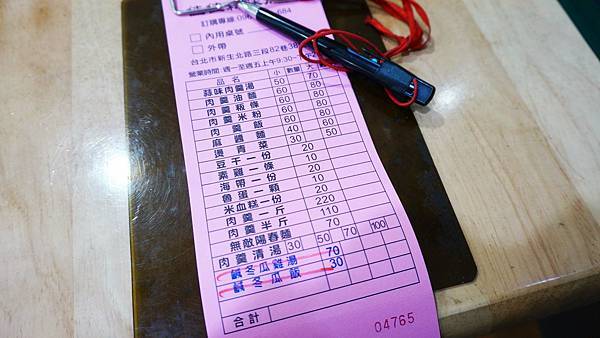 訂購專線 09 684
□ 內用桌號
□ 外帶
台北市新生北路三段82巷38
營業時間：週一至週五上午9:30~
品名 小 數量 大
蒜味肉羹湯 50 70
肉羹油麵 60 80
肉羹粄條 60 80
肉羹米粉 60 80
肉羹飯 60 80
麻醬麵 40 60
燙青菜 30 50
豆干一份 20
素雞一條 10
海帶一份 20
魯蛋一顆 10
米血糕一份 20
肉羹一斤 220
肉羹半斤 110
無敵陽春麵 70
肉羹清湯 30 50 70 100
鹹冬瓜雞湯 70
鹹冬瓜飯 30
合計
04765